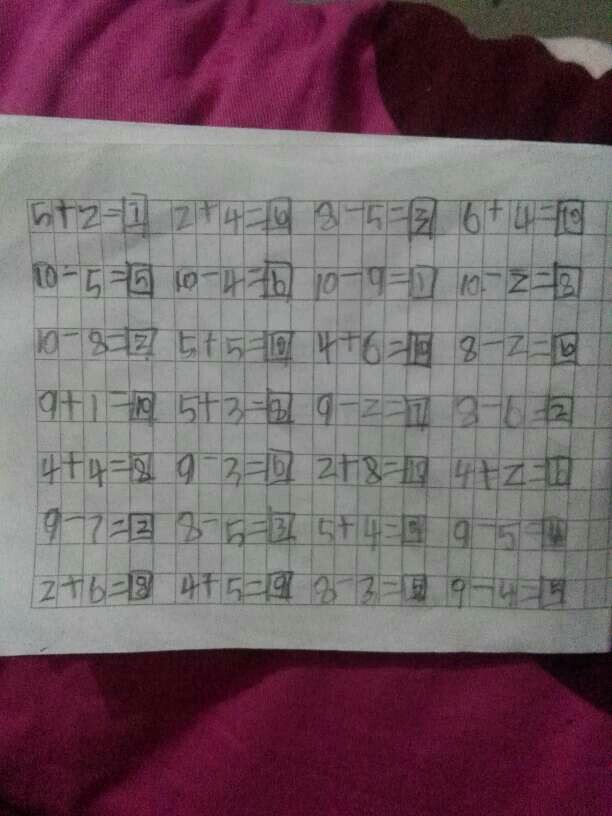 5+2=7 2+4=6 8-5=3 6+4=10
10-5=5 10-4=6 10-9=1 10-2=8
10-8=2 5+5=10 4+6=10 8-2=6
9+1=10 5+3=8 9-2=7 8-6=2
4+4=8 9-3=6 2+8=10 4+2=
9-7=2 8-5=3 5+4=9 9-5=4
2+6=8 4+5=9 8-3=5 9-4=5